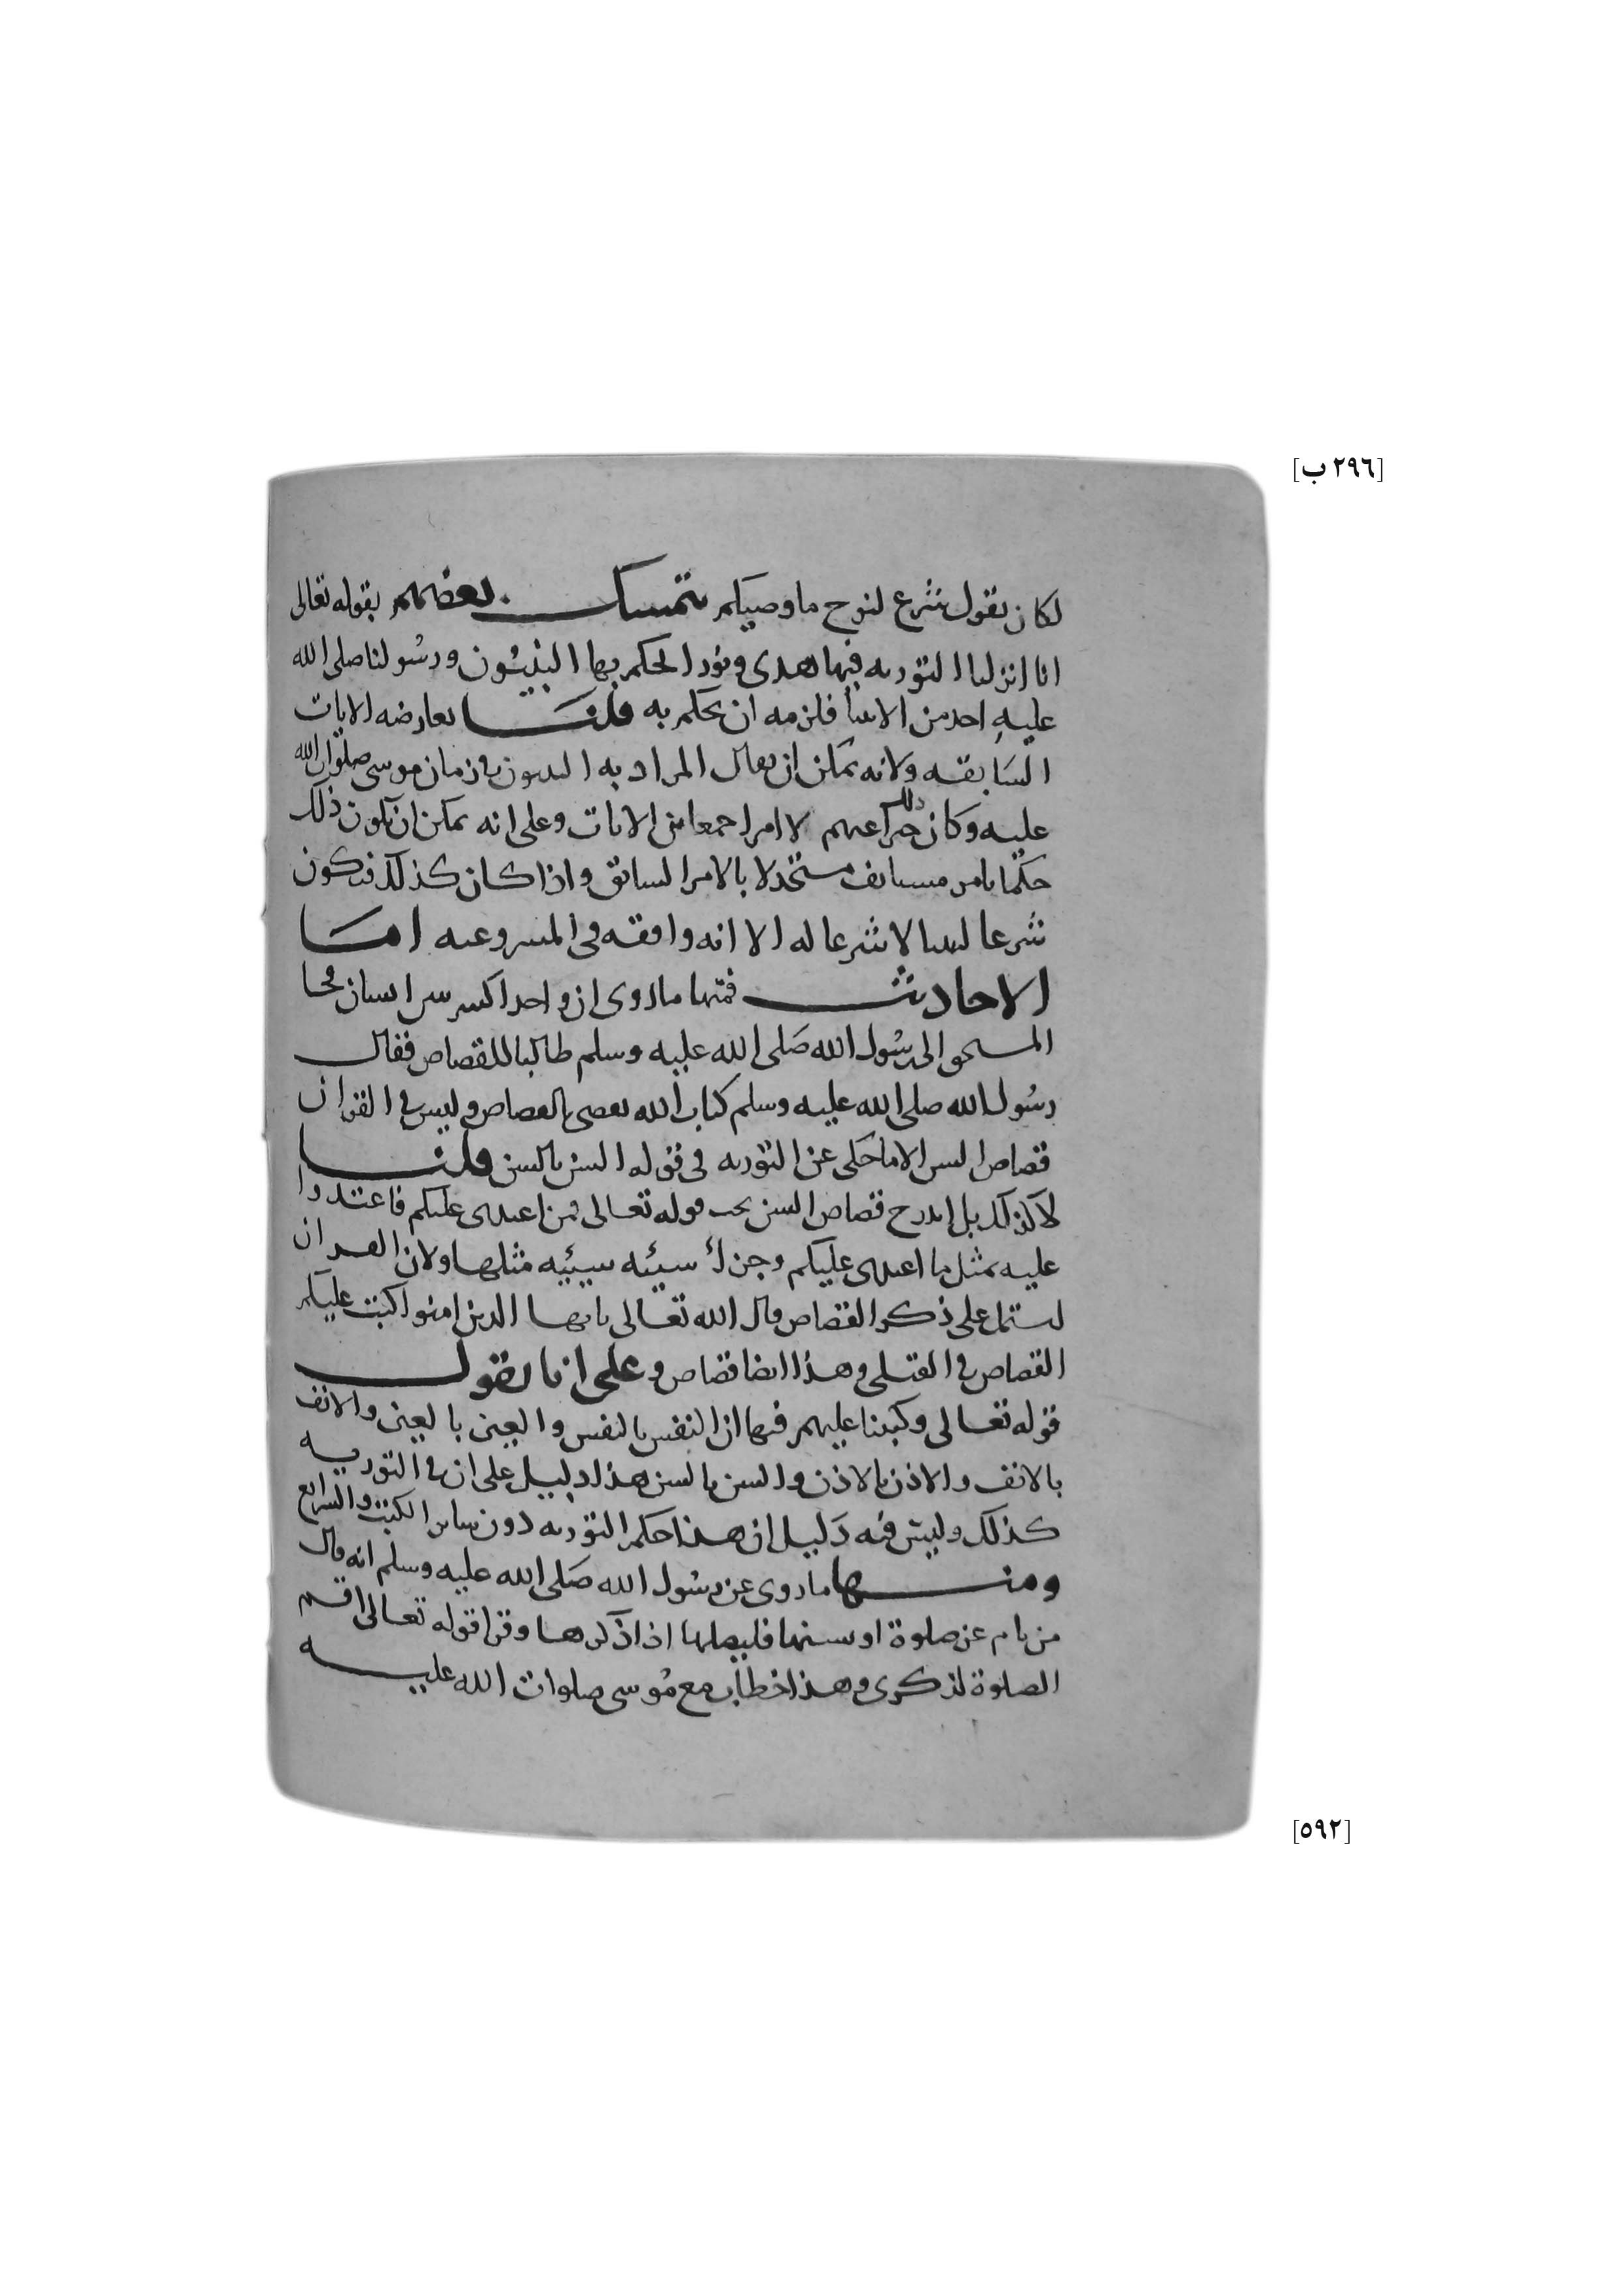 [٢٩٦ ب]
لكان يقول شرع لنوح ما وصيكم تمسك بعضهم بقوله تعالى
انا انزلنا التوريه فيها هدى ونور الحكم بها النبيئون ورسولنا صلى الله
عليه احد من الانبيأ فلزمه ان يحكم به قلنا يعارضه الايات
السابقه ولانه يمكن ان يقال المراد به النبيون في زمان موسى صلوات الله
عليه وكان ذلك خبرا عنهم لا امرا جمعا بين الايات وعلى انه يمكن ان يكون ذلك
حكما بامر مستانف مستخدلا بالامر السابق واذا كان كذلك فيكون
شرعا لنبينا لا شرعا له الا انه وافقه في المشروعيه اما
الاحاديث فمنها ما روى ان واحدا كسر سن انسان فجا
المستحق الى رسول الله صلى الله عليه وسلم طالبا للقصاص فقال
رسول الله صلى الله عليه وسلم كتاب الله يقضى بالقصاص وليس في القران
قصاص السن الا ما حكى عن التوريه في قوله السن بالسن قلنا
لا كذلك بل اندرج قصاص السن تحت قوله تعالى فمن اعتدى عليكم فاعتدوا
عليه بمثل ما اعتدى عليكم وجزأ سيئه سيئيه مثلها ولان القران
يشتمل على ذكر القصاص قال الله تعالى يايها الذين امنوا كتب عليكم
القصاص في القتلى وهذا ايضا قصاص وعلى انا نقول
قوله تعالى وكتبنا عليهم فيها ان النفس بالنفس والعين بالعين والانف
بالانف والاذن بالاذن والسن بالسن هذا دليل على ان في التوريه
كذلك وليس فيه دليل ان هذا حكم التوريه دون ساير الكتب والشرايع
ومنها ما روى عن رسول الله صلى الله عليه وسلم انه قال
من نام عن صلوة او نسيها فليصلها اذا ذكرها وقرا قوله تعالى اقم
الصلوة لذكرى وهذا خطاب مع موسى صلوات الله عليه
[٥٩٢]